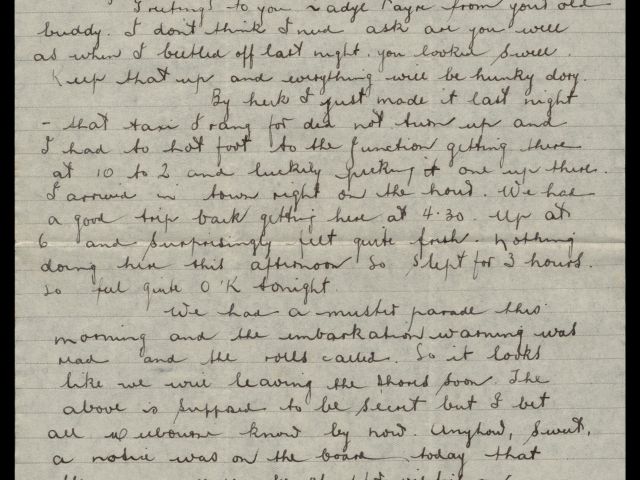 Greetings to you Madge Payne from your old
buddy. I don't think I need ask are you well
as when I beetled off last night you looked swell.
Keep that up and everything will be hunky dory.
By heck I just made it last night
- that taxi I rang for did not turn up and
I had to hot foot to the function getting there
at 10 to 2 and luckily picking one up there.
I arrived in town right on the hour. We had
a good trip back getting here at 4.30. Up at
6 and surprisingly felt quite fresh. Nothing
doing here this afternoon so slept for 3 hours.
so feel quite O'K tonight.
We had a muster parade this
morning and the embarkation warning was
read and the rolls called. So it looks
like we will leaving the shores soon. The
above is supposed to be secret but I bet
all Melbourne know by now. Anyhow, sweet,
a notice was on the board today that